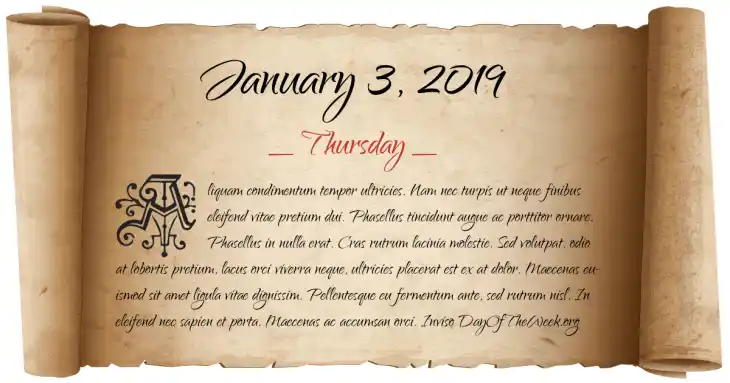 January 3, 2019
_ Thursday _
Aliquam condimentum tempor ultricies. Nam nec turpis ut neque finibus
eleifend vitae pretium dui. Phasellus tincidunt augue ac porttitor ornare.
Phasellus in nulla erat. Cras rutrum lacinia molestie. Sed volutpat, odio
at lobortis pretium, lacus orci viverra neque, ultricies placerat est ex at dolor. Maecenas eu-
ismod sit amet ligula vitae dignissim. Pellentesque eu fermentum ante, sed rutrum nisl. In
eleifend nec sapien et porta. Maecenas ac accumsan orci. Inviso DayOfTheWeek.org